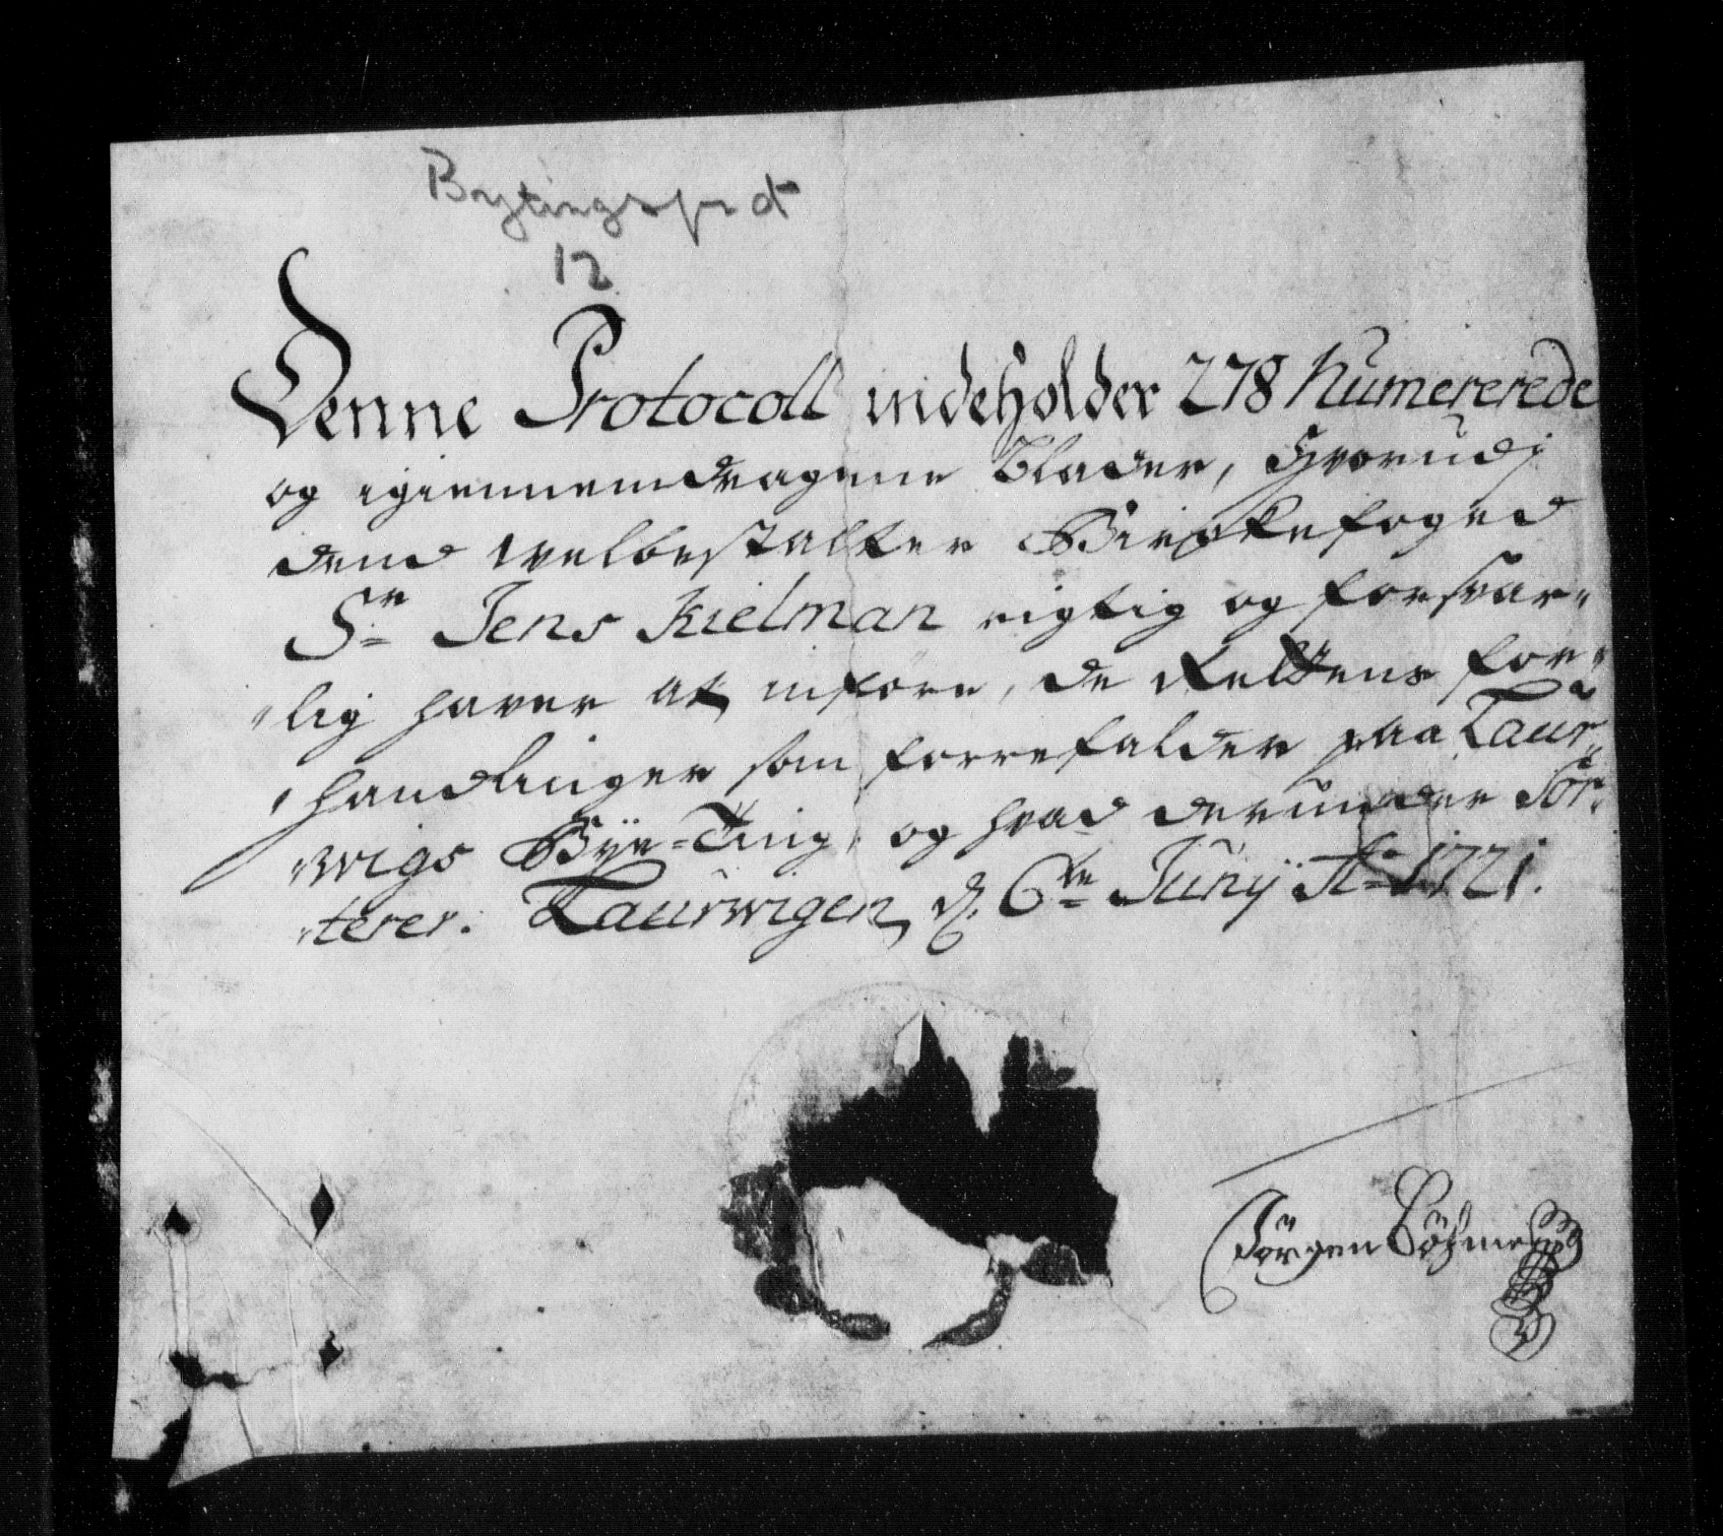 Bytingsprot
12
Denne Protocoll indeholder 278 Numererede
og igiennemdragene Blader, Hvorudj
dend Welbestalter Birckefoged
Sr Jens Kielman rigtig og forsvar-
lig haver at inføre, de Rettens for-
handlinger som forrefalder paa Laur-
wigs Bÿe-Ting, og hvad derunder Sor-
terer. Laurwigen d. 6te Junÿ Ao 1721.
Jörgen Böhme